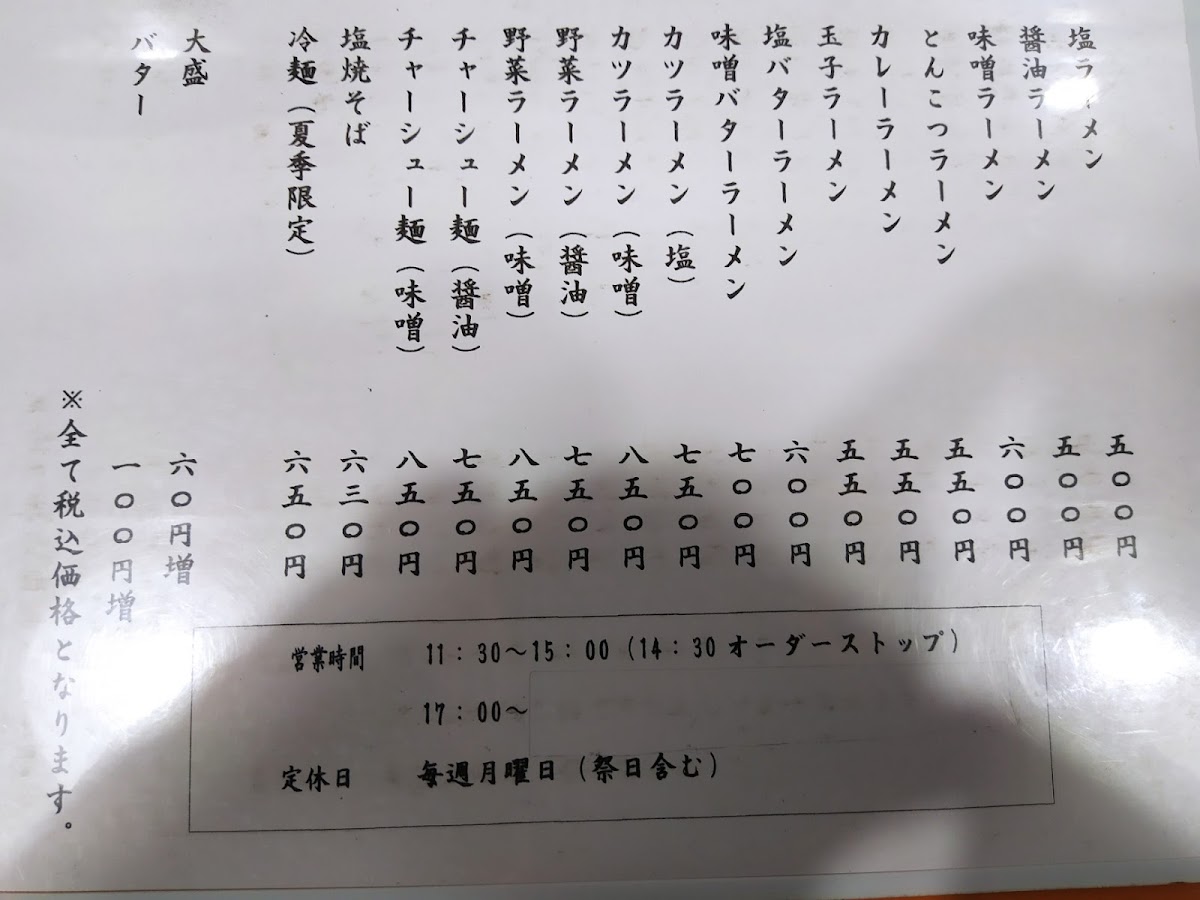 塩ラーメン 五〇〇円
醤油ラーメン 五〇〇円
味噌ラーメン 六〇〇円
とんこつラーメン 五五〇円
カレーラーメン 五五〇円
玉子ラーメン 五五〇円
塩バターラーメン 六〇〇円
味噌バターラーメン 七〇〇円
カツラーメン(塩) 七五〇円
カツラーメン(味噌) 八五〇円
野菜ラーメン(醤油) 七五〇円
野菜ラーメン(味噌) 八五〇円
チャーシュー麺(醤油) 七五〇円
チャーシュー麺(味噌) 八五〇円
塩焼そば 六三〇円
冷麺(夏季限定) 六五〇円
大盛 六〇円増
バター 一〇〇円増
※全て税込価格となります。
営業時間 11:30～15:00(14:30オーダーストップ)
17:00～
定休日 毎週月曜日(祭日含む)